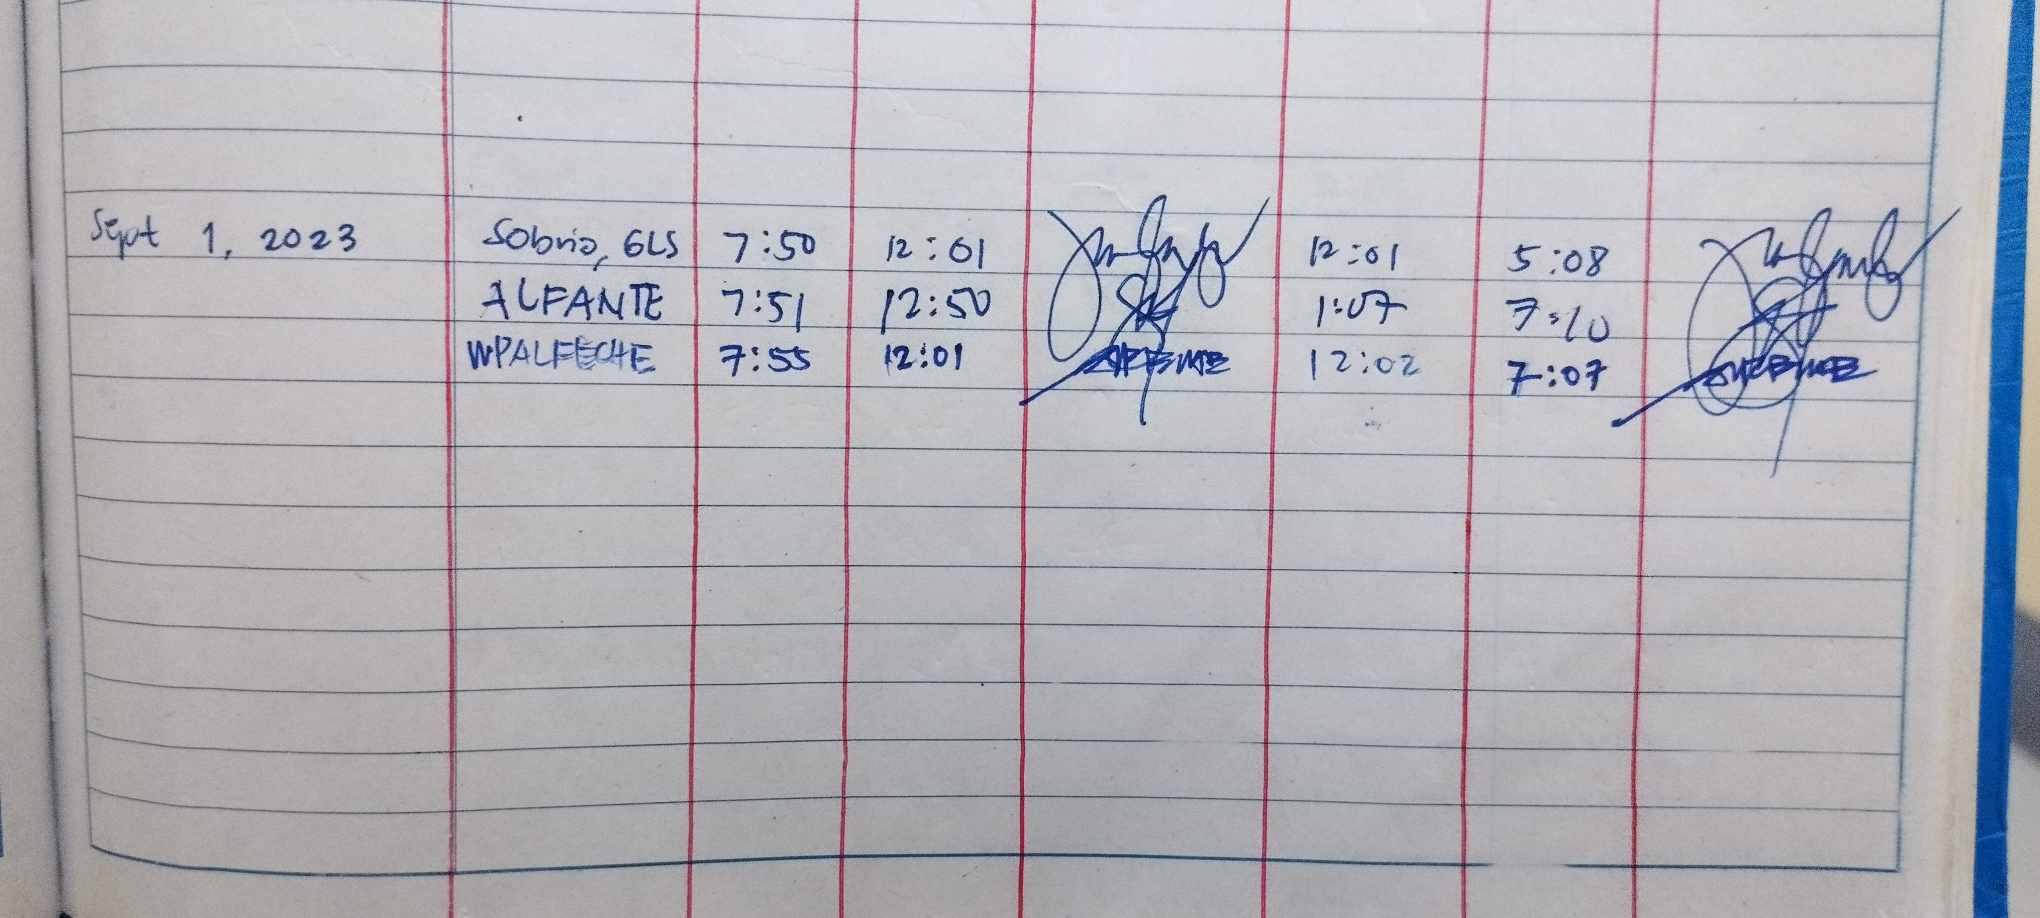 Sept 1, 2023 Sobrio, GLS 7:50 12:01 12:01 5:08
ALFANTE 7:51 12:50 1:07 7:10
WPALFECHE 7:55 12:01 12:02 7:07